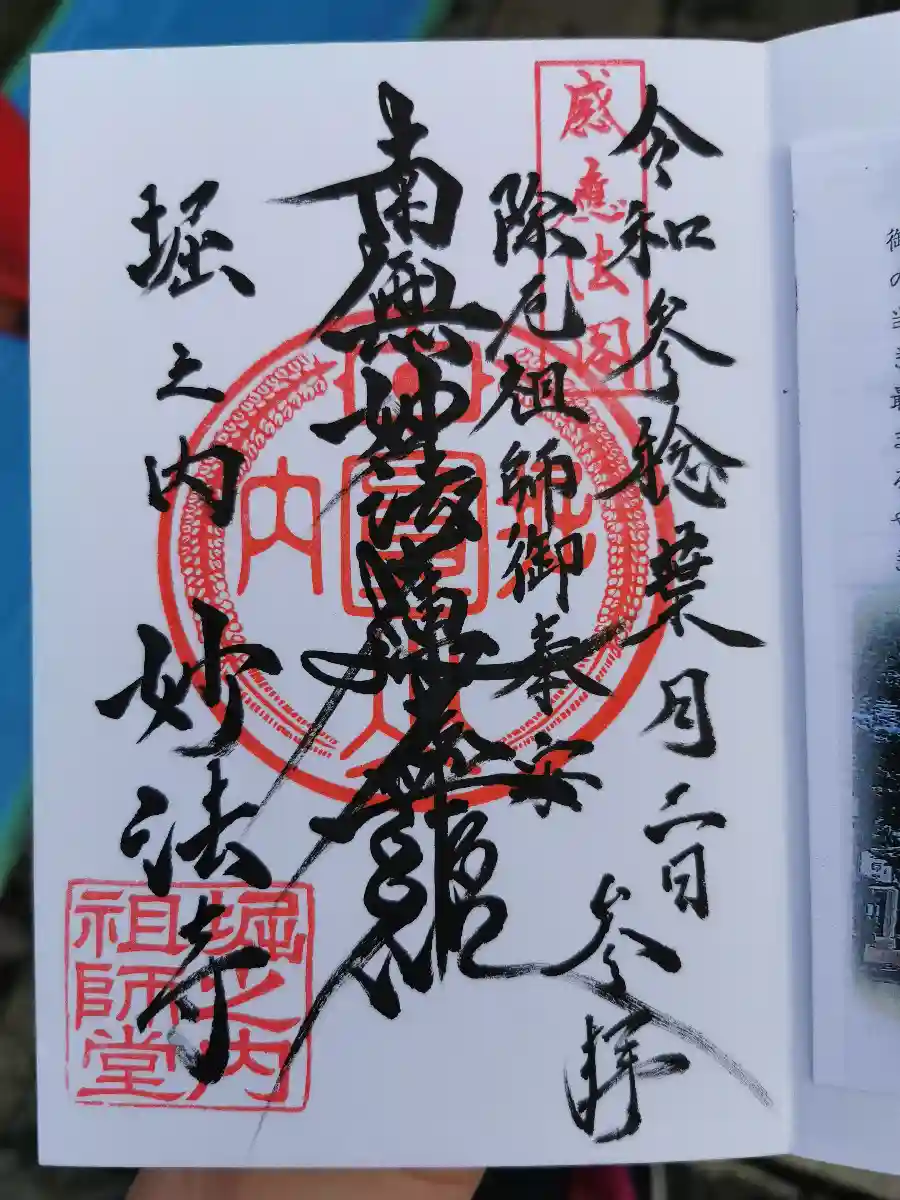 令和参稔葉月二日
参拝
感應法
除厄祖師御奉安
南無妙法蓮華経
内
堀之内 妙法寺
堀之内
祖師堂